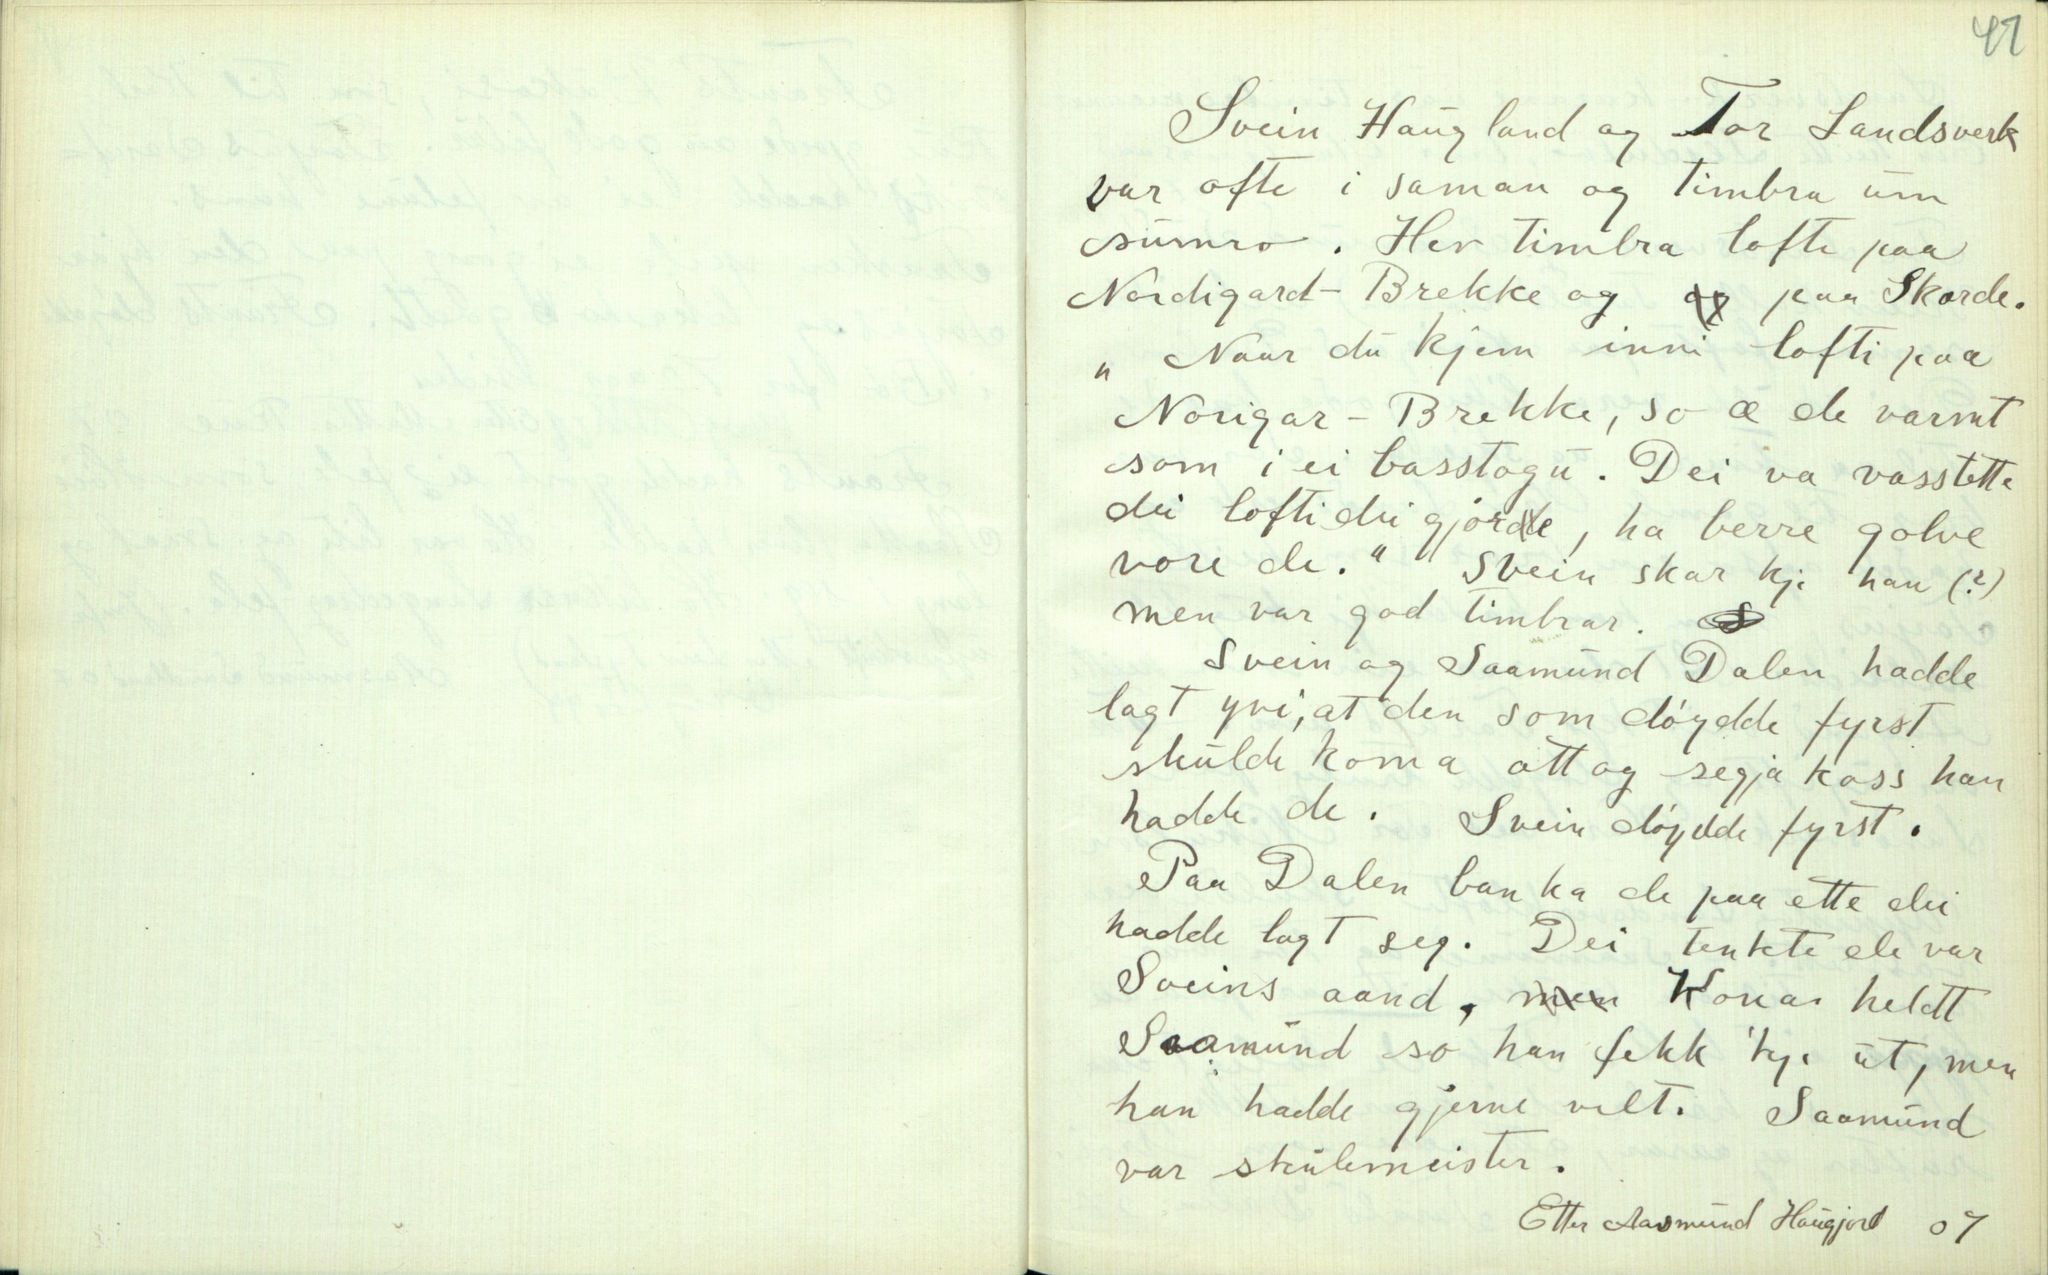 47
Svein Haugland og Tor Landsverk
var ofte i saman og timbra um
sumro. Hev timbra lofte paa
Nordigard-Brekke og og paa Skorde.
„ Naar du kjem inni lofti paa
Norigar-Brekke, so æ de varmt
som i ei basstogu. Dei va vasstette
dei lofti dei gjorde, ha berre golve
vore de." Svein skar kje han (?)
men var god timbrar.
Svein og Saamund Dalen hadde
lagt yvi, at den som döydde fyrst
skulde koma att og segja koss han
hadde de. Svein döydde fyrst.
Paa Dalen banka de paa ette dei
hadde lagt seg. Dei tenkte de var
Sveins aand, men Kona heldt
Saamund so han fekk 'kje ut, men
han hadde gjerne velt. Saamund
var skulemeister.
Etter Aasmund Haugjord 07